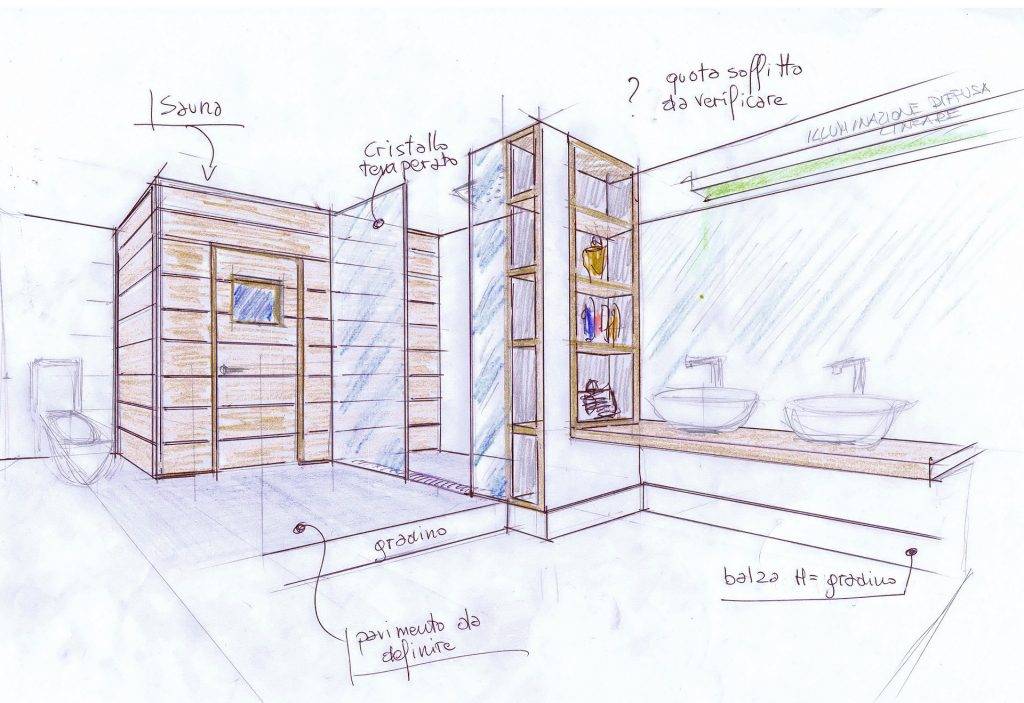 Sauna
cristallo
temperato
? quota soffitto
da verificare
ILLUMINAZIONE DIFFUSA
LINEARE
gradino
balza H= gradino
pavimento da
definire